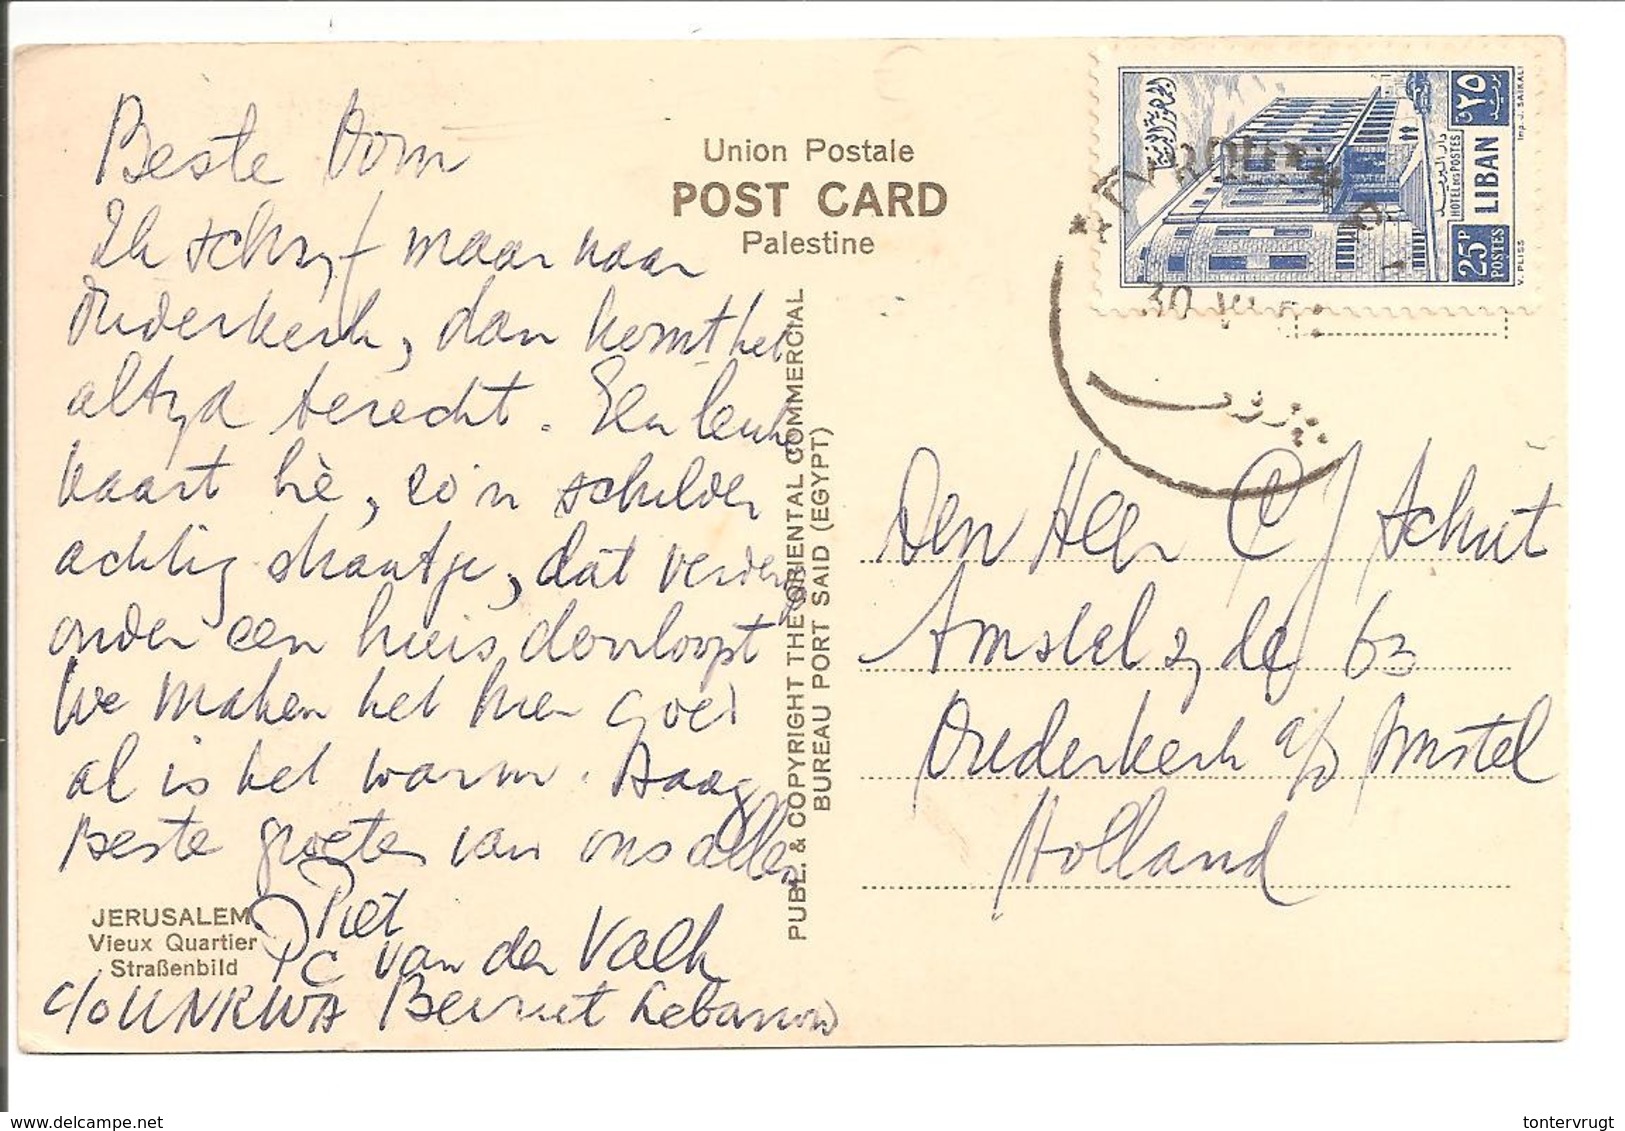 Beste Oom
Ik schryf maar naar
Ouderkerk, dan komt het
altyd terecht. Een leuke
kaart hè, zo'n schilder
achtig straatje, dat verder
onder een huis doorloopt
We maken het hier goed
al is het warm. Haag
Beste groeten van ons allen
Piet
P C van der Valk
c/o UNRWA Beirut Lebanon
JERUSALEM
Vieux Quartier
Straßenbild
Union Postale
POST CARD
Palestine
PUBL. & COPYRIGHT THE ORIENTAL COMMERCIAL
BUREAU PORT SAID (EGYPT)
٢٥ ق
بريد
دار البريد
HOTEL DES POSTES
LIBAN
25P
POSTES
Imp. J. SAIKALI
V. PLISS
30
بيروت
Den Heer C J Schut
Amstelzyde 63
Ouderkerk a/d Amstel
Holland
delcampe.net
tontervrugt